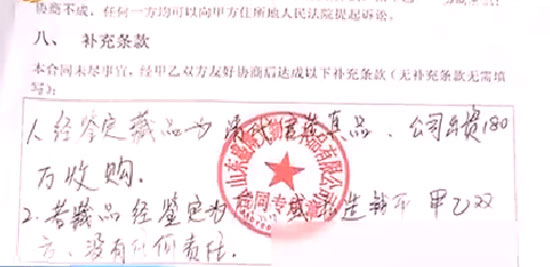 协商不成，任何一方均可以向甲方住所地人民法院提起诉讼。
八、 补充条款
本合同未尽事宜，经甲乙双方友好协商后达成以下补充条款（无补充条款无需填
写）：
1、经鉴定藏品为清代 真品、公司出资180
万收购。
2、若藏品经鉴定为 甲乙双
方、没有任何责任。
山东 有限公司
合同专